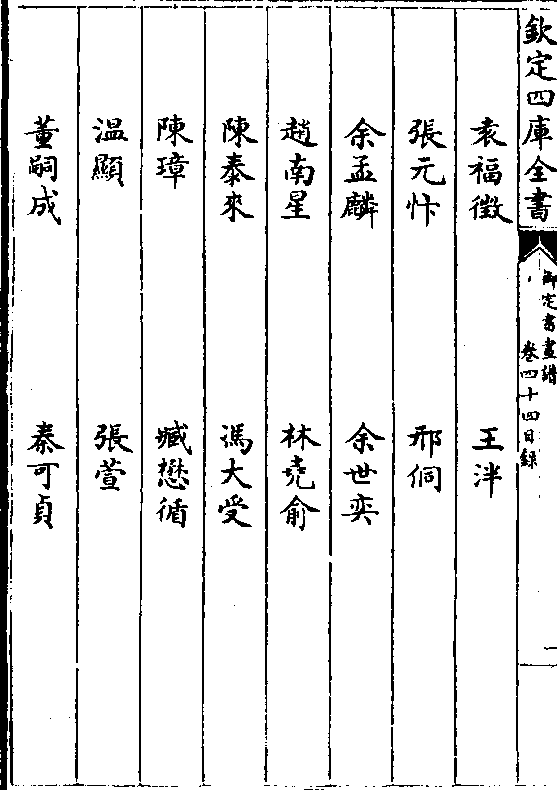 欽定四庫全書
御定書畫譜
卷四十四目録
一
袁福徴 王泮
張元忭 邢侗
余孟麟 余世奕
趙南星 林堯俞
陳泰來 馮大受
陳璋 臧懋循
温顯 張萱
董嗣成 秦可貞